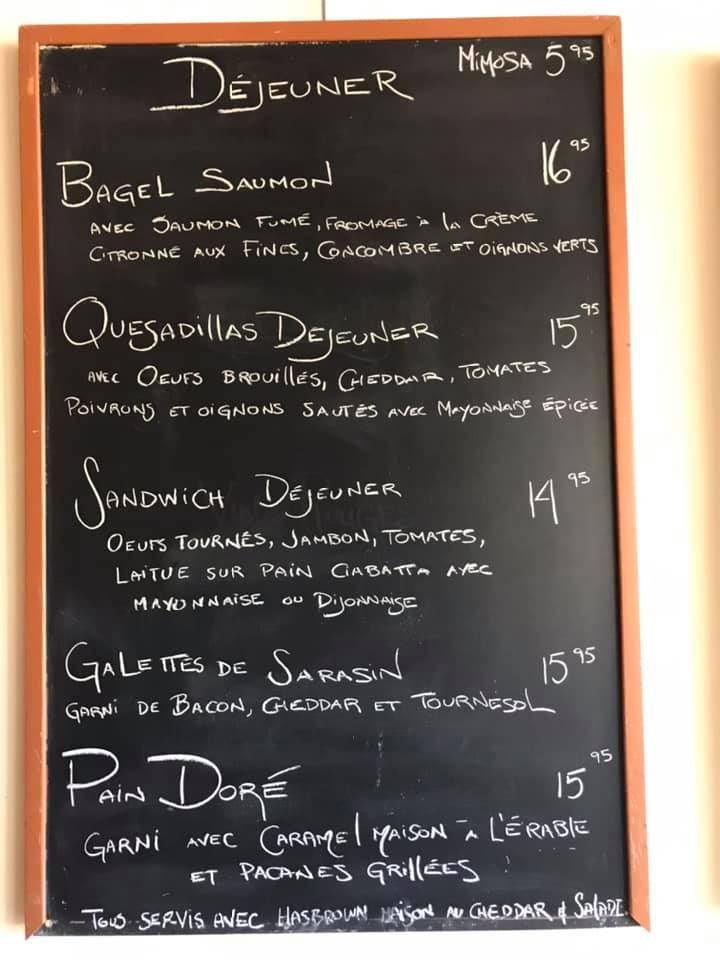 DÉJEUNER
MIMOSA 5 95
BAGEL SAUMON 16 95
AVEC SAUMON FUMÉ, FROMAGE à la CRÈME
CITRONNÉ AUX FINES, CONCOMBRE ET OIGNONS VERTS
QUESADILLAS DEJEUNER 15 95
AVEC OEUFS BROUILLÉS, CHEDDAR, TOMATES
POIVRONS ET OIGNONS SAUTÉS AVEC MAYONNAISE ÉPICÉE
SANDWICH DÉJEUNER 14 95
OEUFS TOURNÉS, JAMBON, TOMATES,
LAITUE SUR PAIN CIABATTA AVEC
MAYONNAISE OU DIJONNAISE
GALETTES DE SARASIN 15 95
GARNI DE BACON, CHEDDAR ET TOURNESOL
PAIN DORÉ 15 95
GARNI AVEC CARAMEL MAISON à L'ÉRABLE
ET PACANES GRILLÉES
TOUS SERVIS AVEC HASBROWN MAISON AU CHEDDAR & SALADE